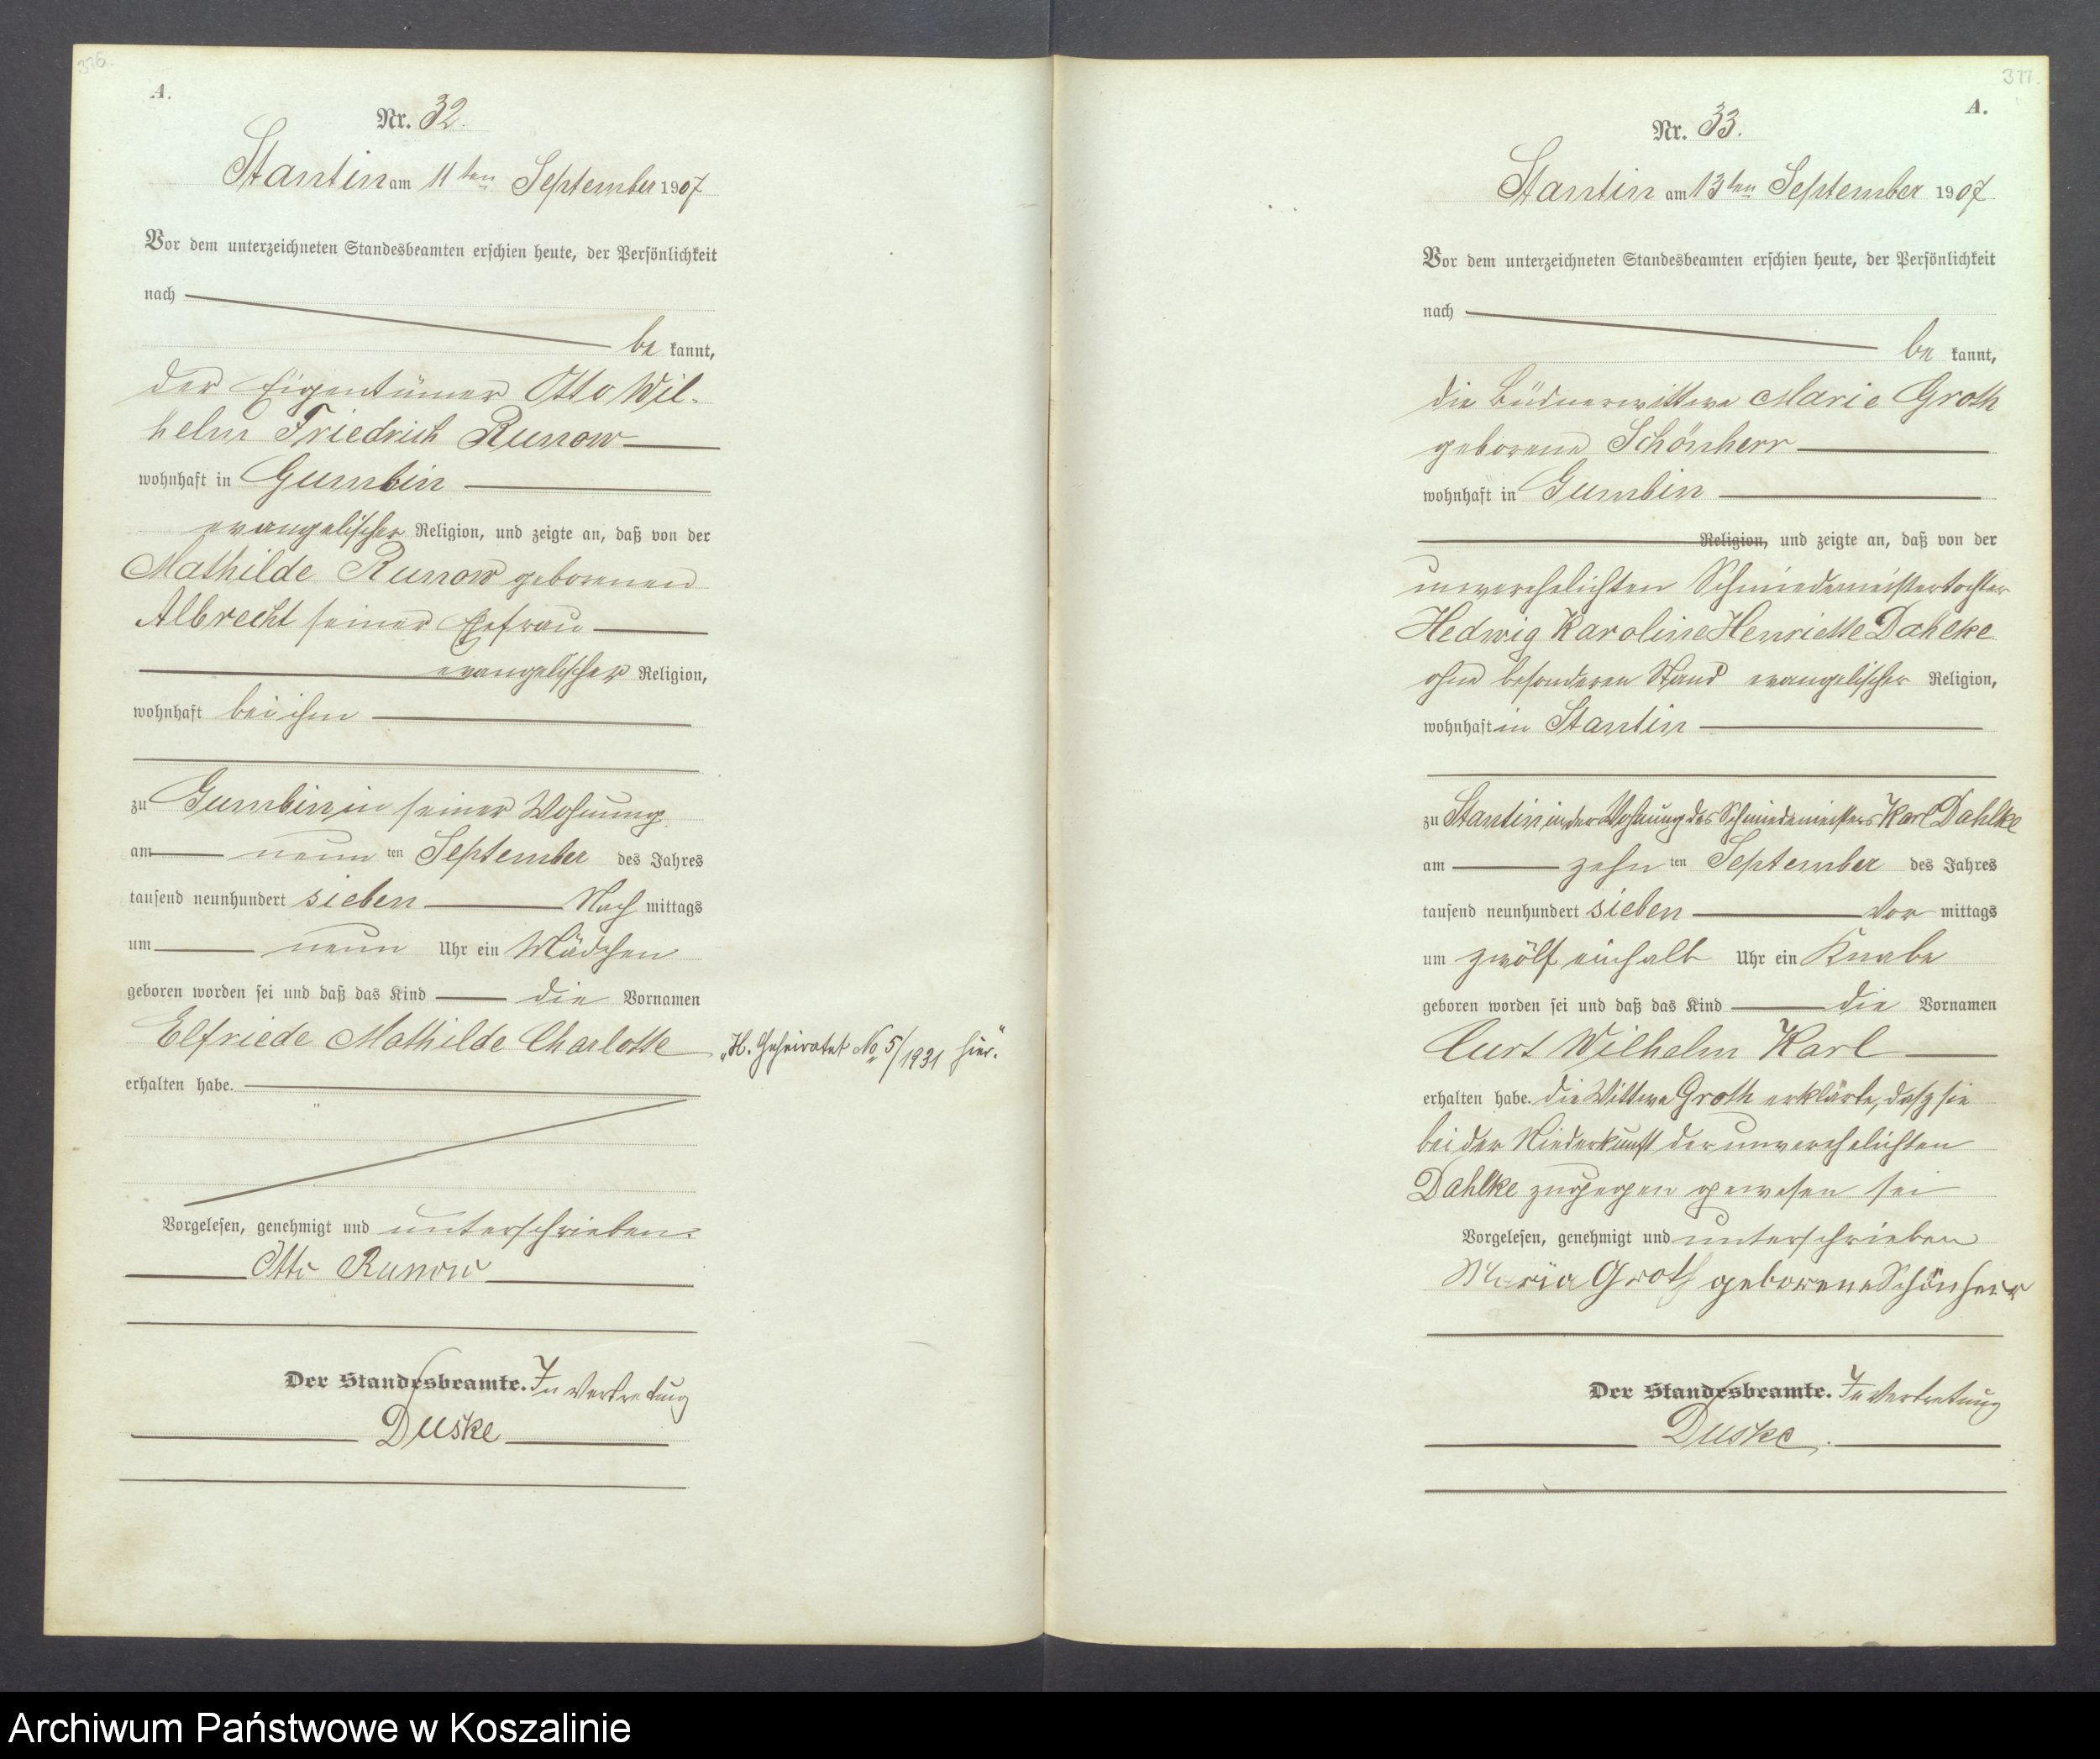 376.
A.
Nr. 32.
Stantin am 11ten September 1907
Vor dem unterzeichneten Standesbeamten erschien heute, der Persönlichkeit
nach
be kannt,
der Eigentümer Otto Wil-
helm Friedrich Runow
wohnhaft in Gumbin
evangelischer Religion, und zeigte an, daß von der
Mathilde Runow geborenen
Albrecht seiner Ehefrau
evangelischer Religion,
wohnhaft bei ihm
zu Gumbin in seiner Wohnung
am neun ten September des Jahres
tausend neunhundert sieben Nach mittags
um neun Uhr ein Mädchen
geboren worden sei und daß das Kind die Vornamen
Elfriede Mathilde Charlotte
„H. Geheiratet No 5/1931 hier."
erhalten habe.
Vorgelesen, genehmigt und unterschrieben.
Otto Runow
Der Standesbeamte. In Vertretung
Duske
377.
A.
Nr. 33.
Stantin am 13ten September 1907
Vor dem unterzeichneten Standesbeamten erschien heute, der Persönlichkeit
nach
be kannt,
die Büdnerwittwe Marie Groth
geborene Schönherr
wohnhaft in Gumbin
Religion, und zeigte an, daß von der
unverehelichten Schmiedemeistertochter
Hedwig Karoline Henriette Dahlke
ohne besonderen Stand evangelischer Religion,
wohnhaft in Stantin
zu Stantin in der Wohnung des Schmiedemeisters Karl Dahlke
am zehn ten September des Jahres
tausend neunhundert sieben Vor mittags
um zwölf einhalb Uhr ein Knabe
geboren worden sei und daß das Kind die Vornamen
Curt Wilhelm Karl
erhalten habe. Die Wittwe Groth erklärte, daß sie
bei der Niederkunft der unverehelichten
Dahlke zugegen gewesen sei
Vorgelesen, genehmigt und unterschrieben
Maria Groth geborene Schönherr
Der Standesbeamte. In Vertretung
Duske.
Archiwum Państwowe w Koszalinie